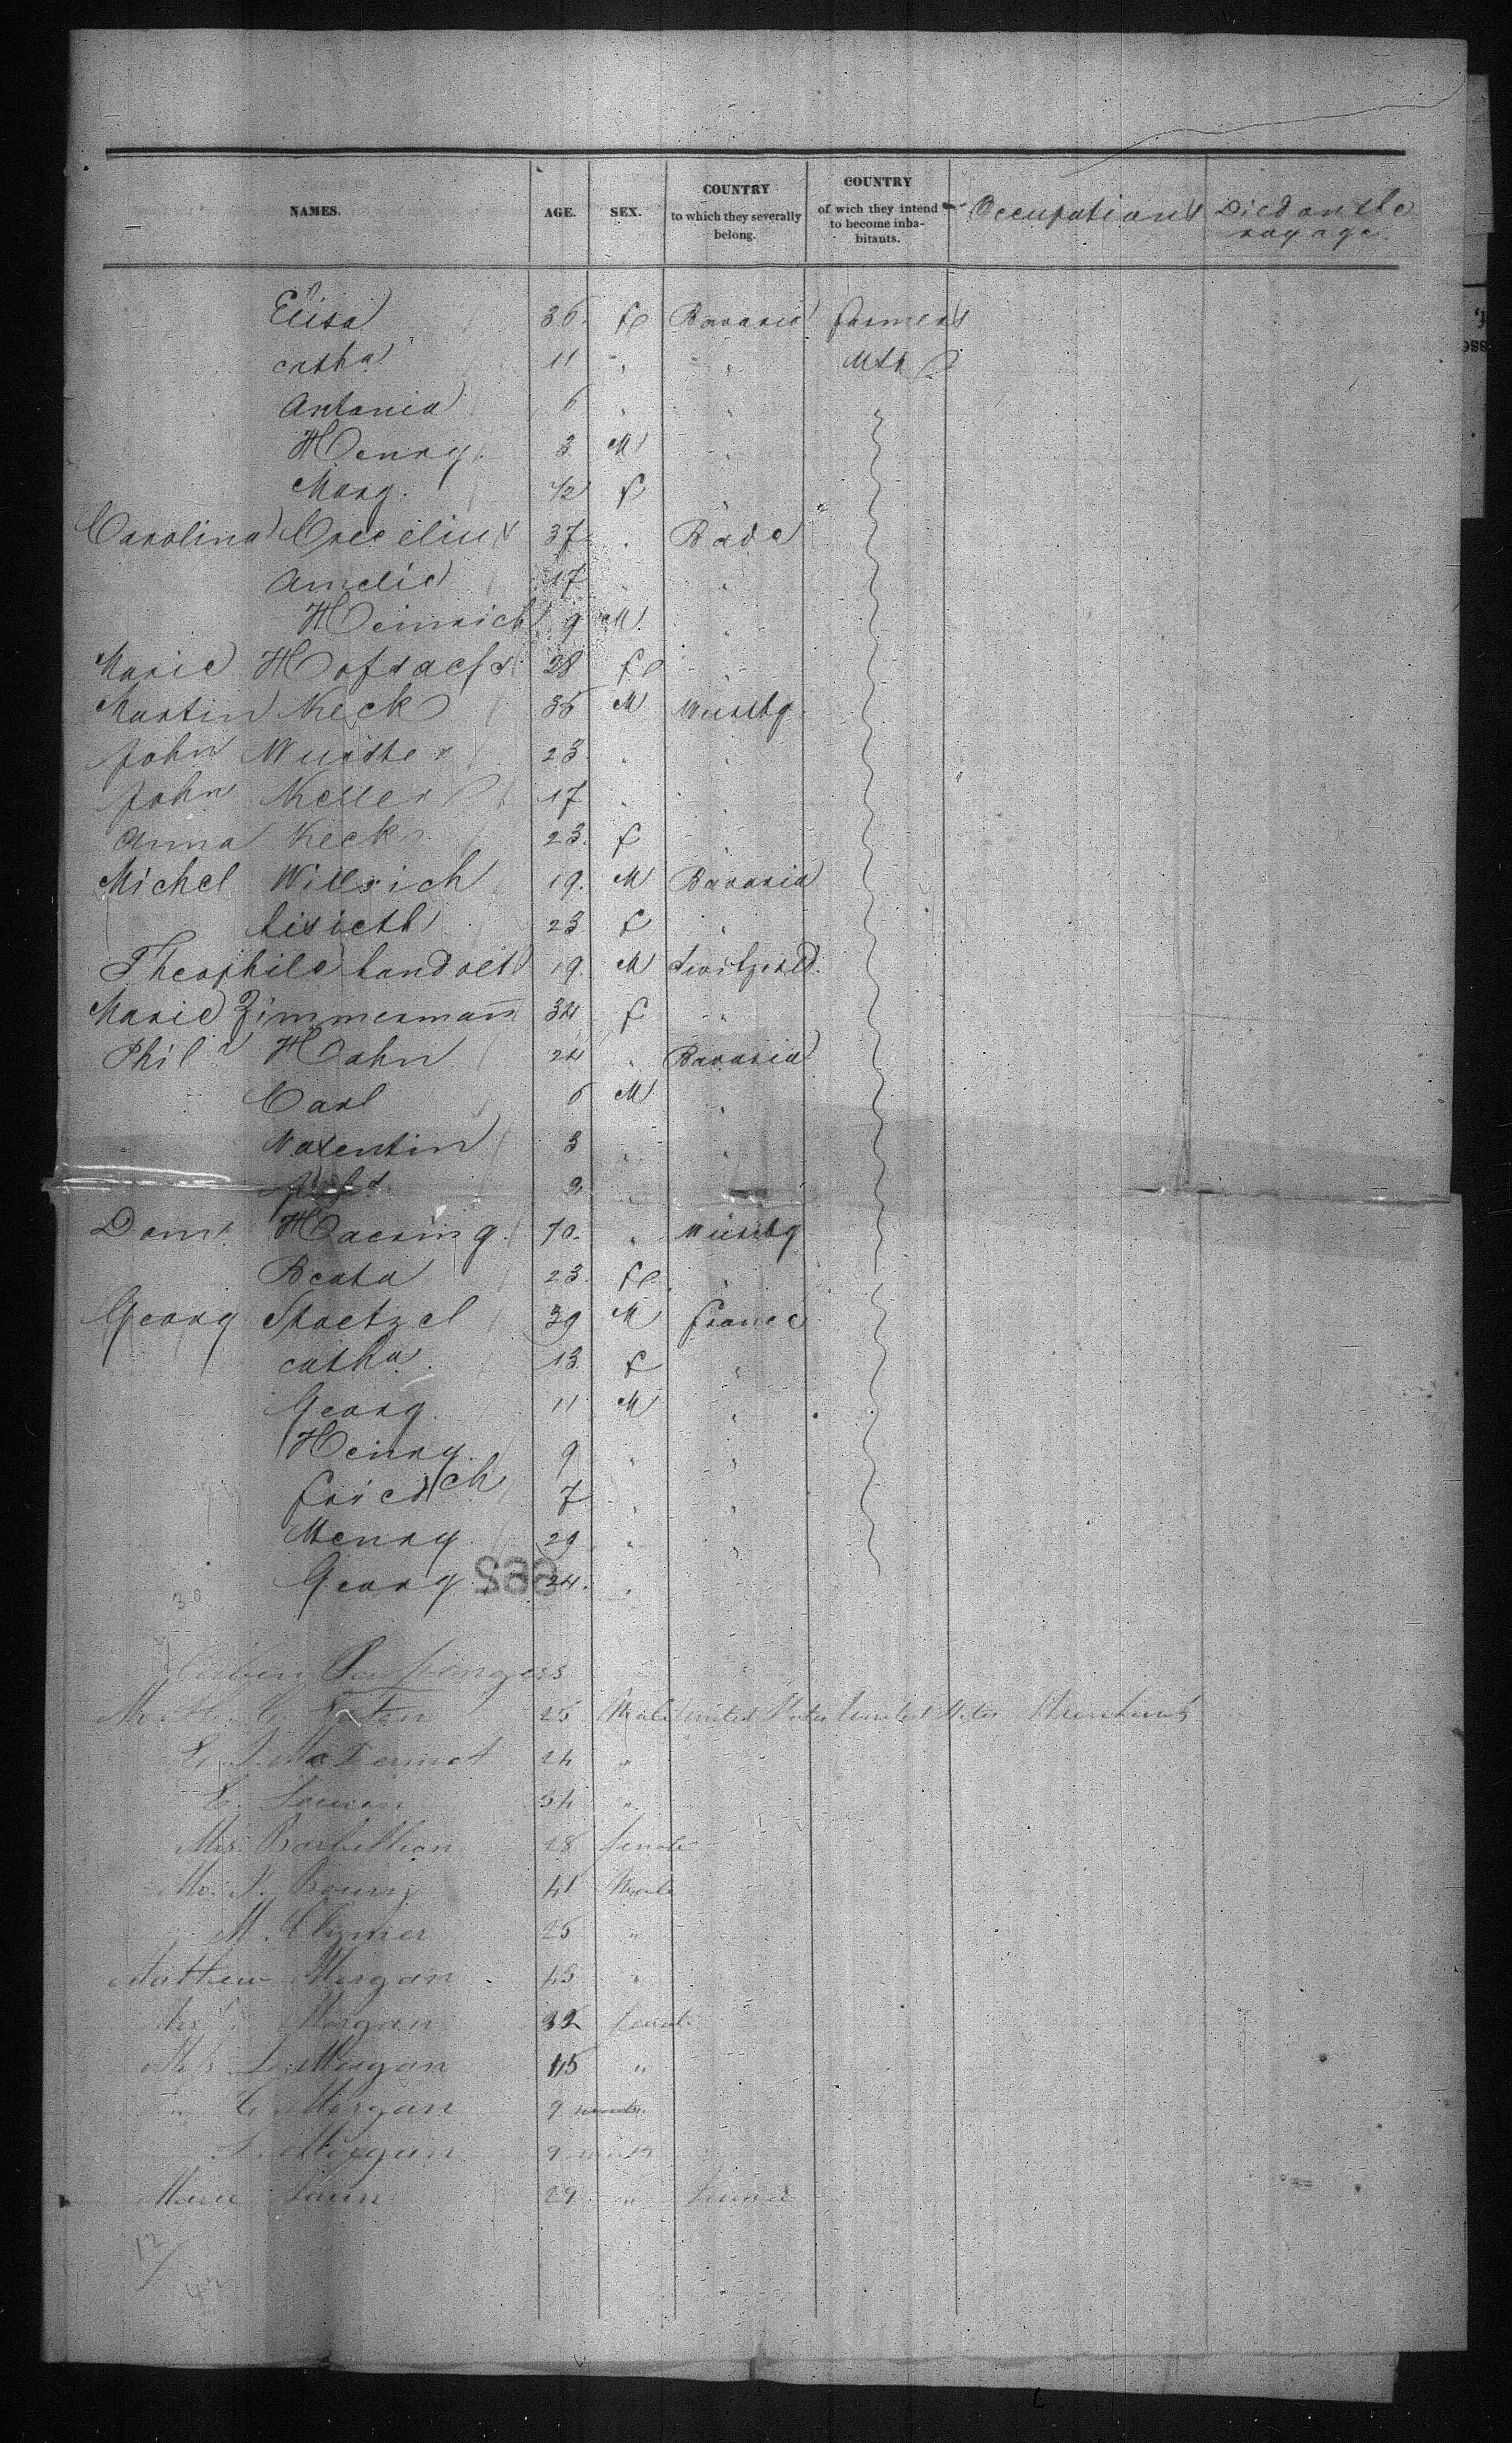 NAMES. AGE. SEX. COUNTRY to which they severally belong. COUNTRY of wich they intend to become inhabitants. Occupations Died on the voyage.
Elisa 36. f Bavaria farmers
Catha 11 " " Mth
Antonia 6 " "
Henry 3 M "
Marg. 1/2 f "
Carolina Crecelius 37 " Bade
Amelie 17 " "
Heinrich 9 M. "
Marie Hofsaess 28 f "
Martin Keck 36 M Würtbg
John Wurster 23. " "
John Keller 17 " "
Anna Keck 23. f "
Michel Willrich 19. M Bavaria
Lisieth 23 f "
Theophile Landolt 19. M Switzerld.
Marie Zimmermann 34 f "
Phil Hahn 24 " Bavaria
Carl 6 M "
Valentin 3 " "
2 "
Haering " Würtbg
Beata 23. f "
Georg Stoetzel 39 M france
Catha. 13 f "
Georg 11 M "
Henry 9 " "
friedrch 7 " "
Henry 29 " "
Georg 24. "
30
Cabin Passengers
25 Male United States United States Merchant
McDermot 24 "
E. 34 "
Mrs. Barbellion 28 female
41 Male
M. Clymer 25 "
Mathew Morgan 45 "
Morgan 32 female
L. Morgan 15 "
C. Morgan 9
L. Morgan 9
Marie 29 " France
12
42